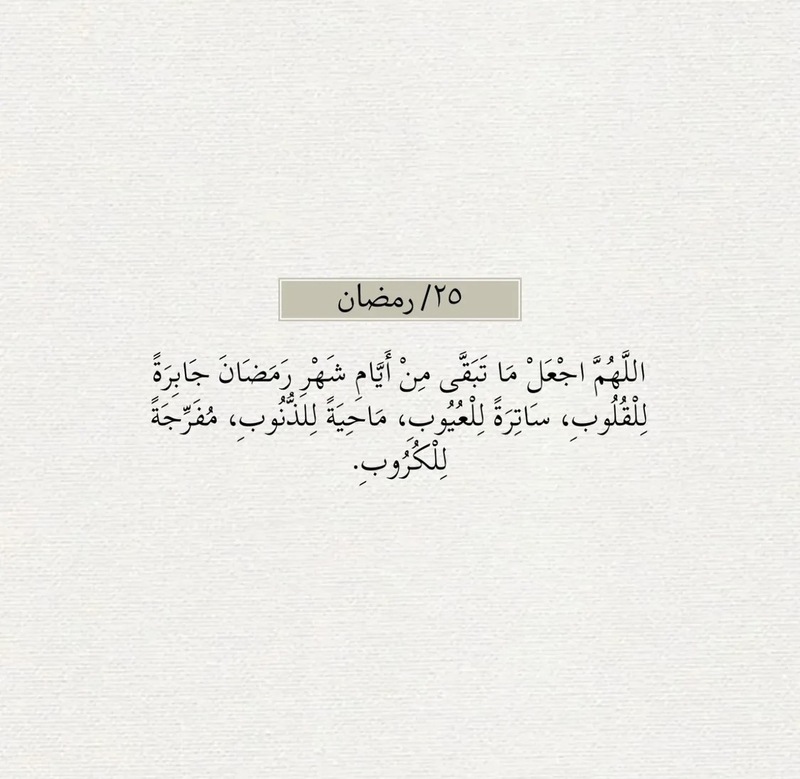 ٢٥/ رمضان
اللَّهُمَّ اجْعَلْ مَا تَبَقَّى مِنْ أَيَّامِ شَهْرِ رَمَضَانَ جَابِرَةً
لِلْقُلُوبِ، سَاتِرَةً لِلْعُيُوبِ، مَاحِيَةً لِلذُّنُوبِ، مُفَرِّجَةً
لِلْكُرُوبِ.